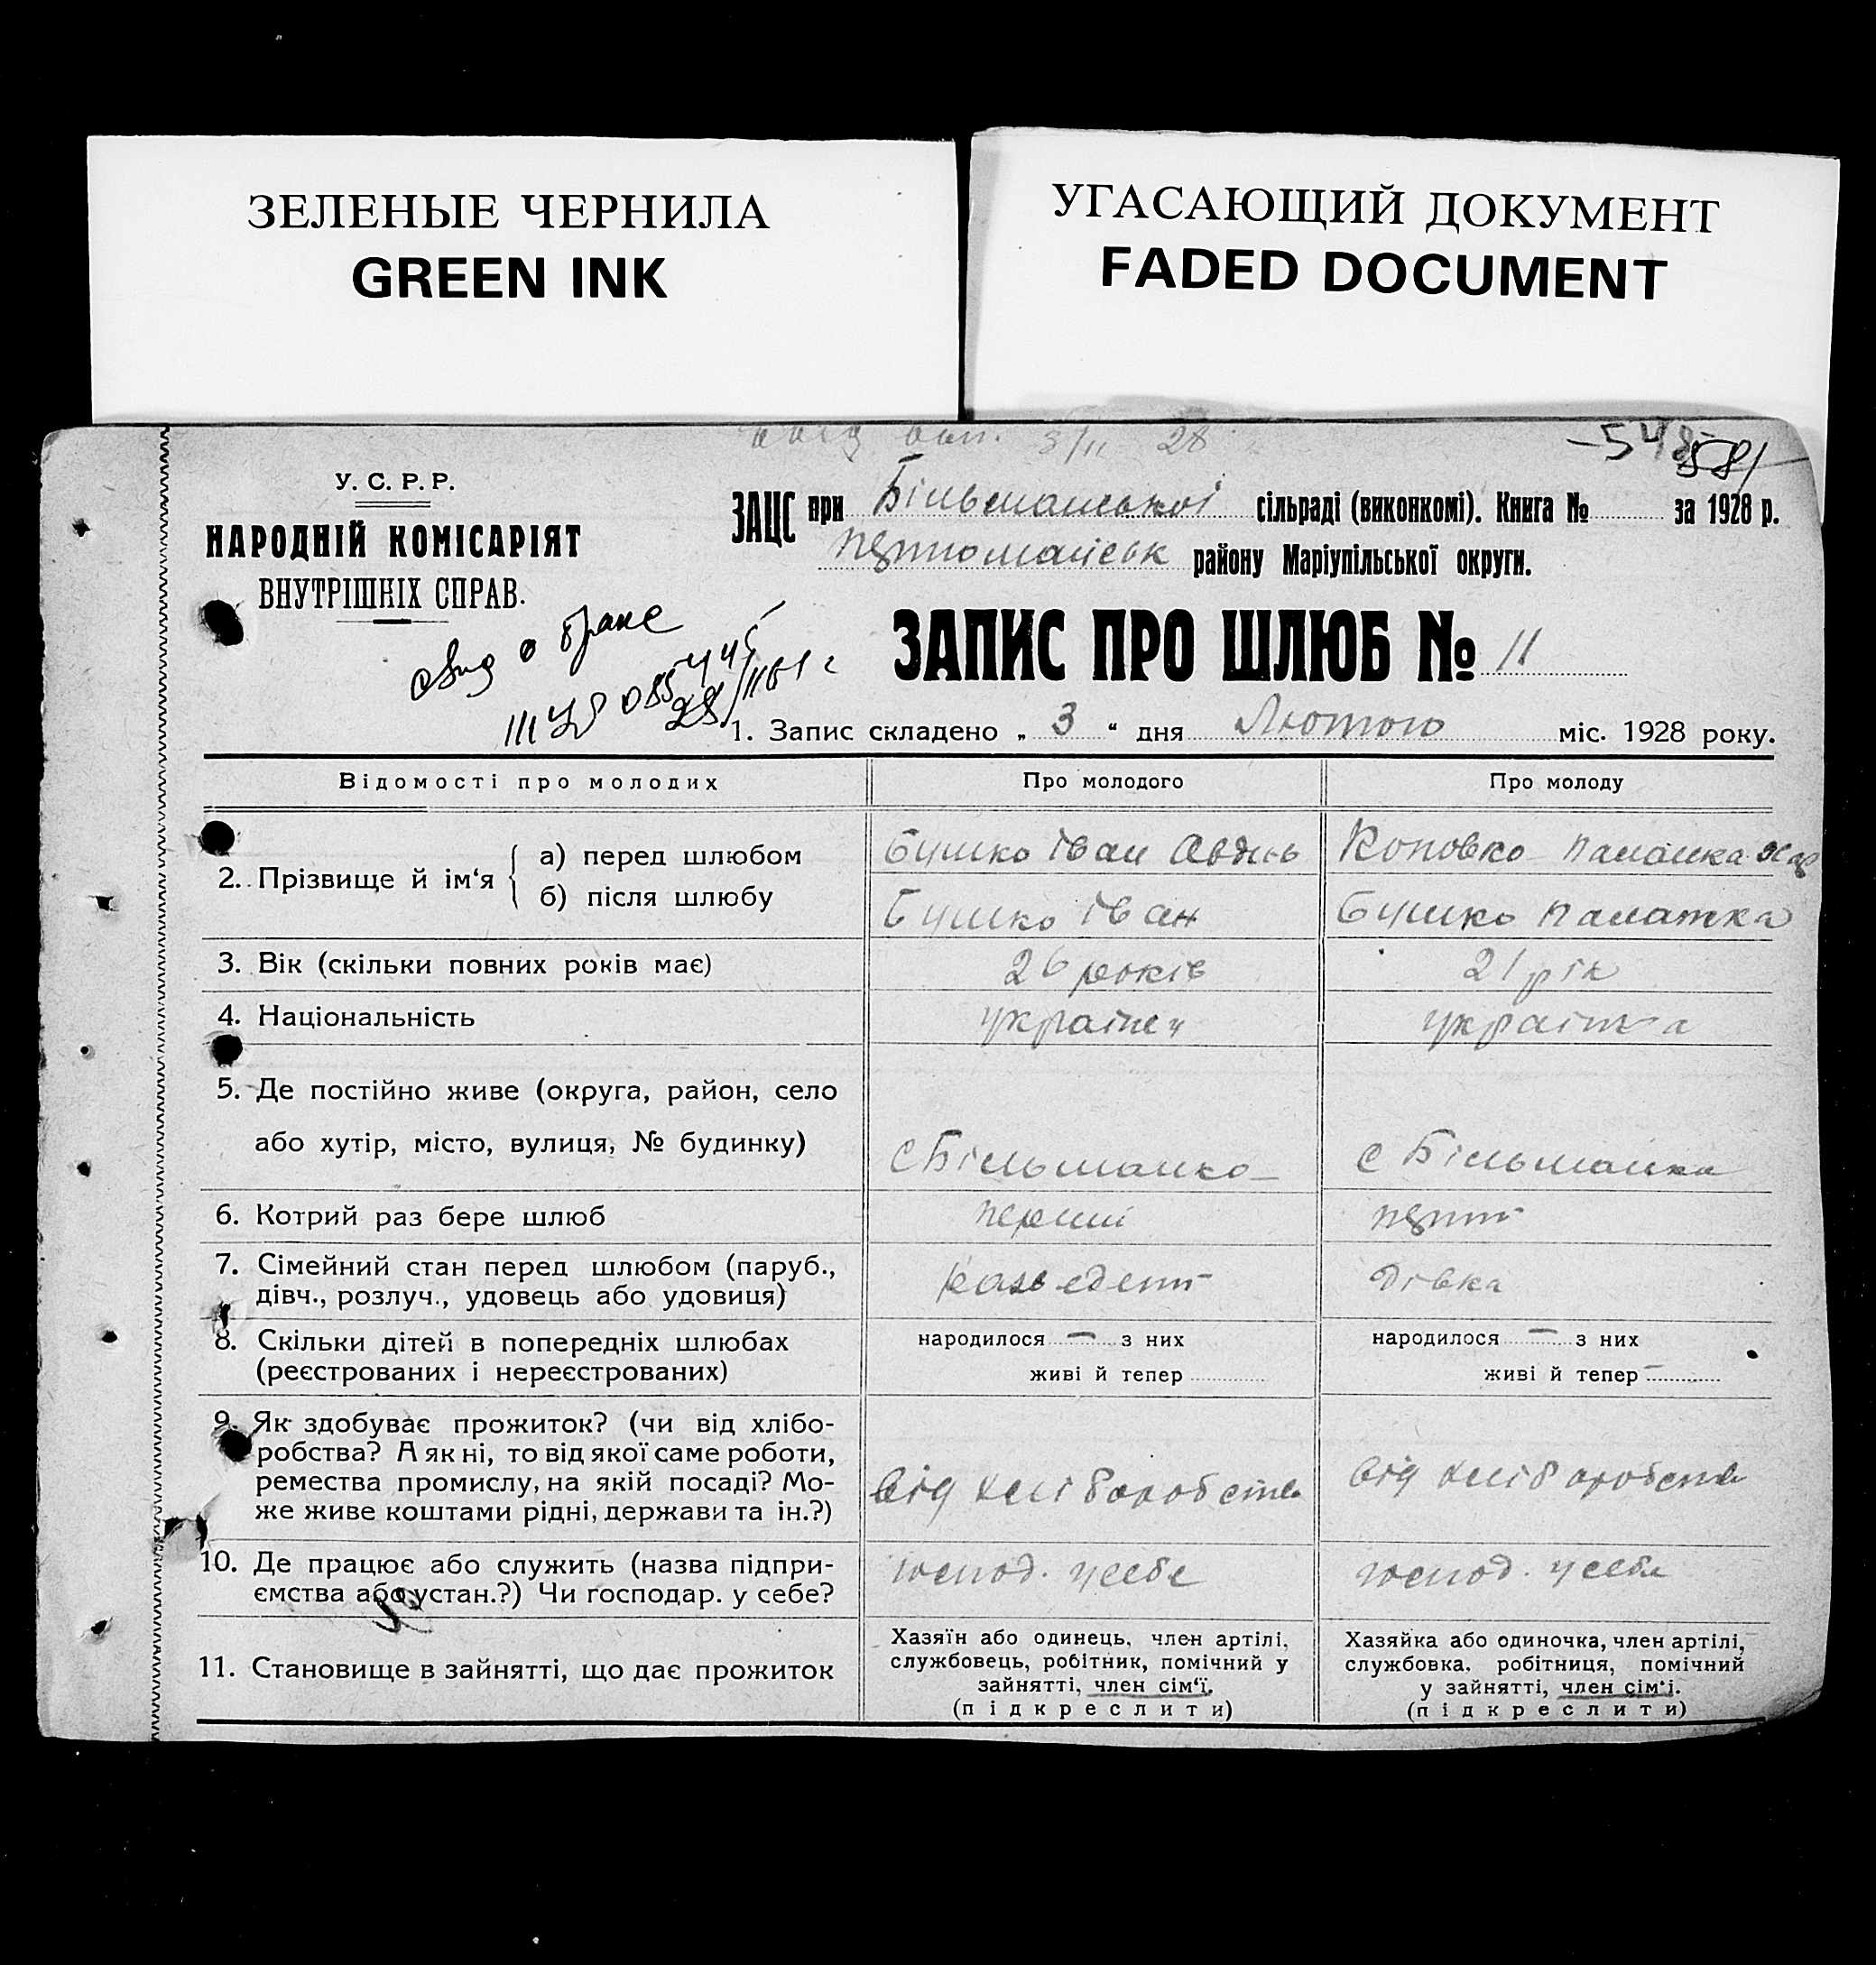 ЗЕЛЕНЫЕ ЧЕРНИЛА
GREEN INK
УГАСАЮЩИЙ ДОКУМЕНТ
FADED DOCUMENT
3/II 28
581
У. С. Р. Р.
НАРОДНІЙ КОМІСАРІЯТ
ВНУТРІШНІХ СПРАВ.
ЗАЦС при Більманської сільраді (виконкомі). Книга № за 1928 р.
району Маріупільської округи.
свид о браке
ЗАПИС ПРО ШЛЮБ № 11
1. Запис складено „ 3 “ дня Лютого міс. 1928 року.
Відомості про молодих Про молодого Про молоду
2. Прізвище й ім‘я
а) перед шлюбом Бушко Іван
б) після шлюбу Бушко Іван Бушко
3. Вік (скільки повних років має) 26 років 21 рік
4. Національність українец українка
5. Де постійно живе (округа, район, село
або хутір, місто, вулиця, № будинку) с Більманка с Більманка
6. Котрий раз бере шлюб перший
7. Сімейний стан перед шлюбом (паруб.,
дівч., розлуч., удовець або удовиця) дівка
8. Скільки дітей в попередніх шлюбах народилося — з них народилося — з них
(реєстрованих і нереєстрованих) живі й тепер живі й тепер
9. Як здобуває прожиток? (чи від хлібо-
робства? А як ні, то від якої саме роботи,
ремества промислу, на якій посаді? Мо-
же живе коштами рідні, держави та ін.?) від хліборобства від хліборобства
10. Де працює або служить (назва підпри-
ємства або устан.?) Чи господар. у себе? господ. у себе господ. у себе
11. Становище в зайнятті, що дає прожиток
Хазяїн або одинець, член артілі,
службовець, робітник, помічний у
зайнятті, член сім‘ї.
(підкреслити)
Хазяйка або одиночка, член артілі,
службовка, робітниця, помічний
у зайнятті, член сім‘ї.
(підкреслити)